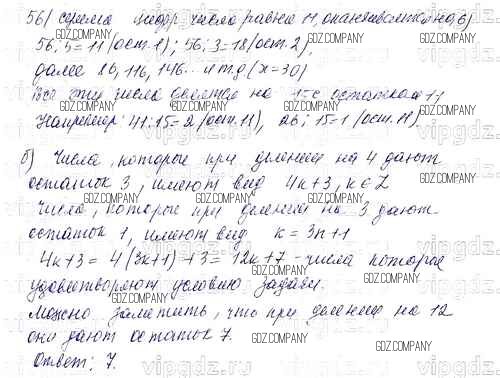 56 (сумма цифр числа равна 11, оканчивается на 6)
56:5=11 (ост.1); 56:3=18 (ост.2).
далее 86, 116, 146... и т.д (x=30)
Все эти числа делятся на 15 с остатком 11
Например: 41:15=2 (ост.11), 26:15=1 (ост.11).
б) Числа, которые при делении на 4 дают
остаток 3, имеют вид 4k+3, k∈Z
Числа, которые при делении на 3 дают
остаток 1, имеют вид k=3n+1
4k+3=4(3n+1)+3=12n+7 - числа которые
удовлетворяют условию задачи.
Можно заметить, что при делении на 12
они дают остаток 7.
Ответ: 7.
GDZ.COMPANY
vipgdz.ru